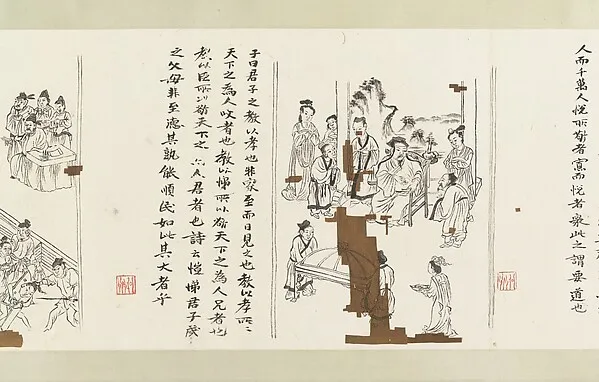 人而千萬人悅所敬者寡而悅者衆此之謂要道也
子曰君子之教以孝也非家至而日見之也教以孝所以
天下之為人父者也教以悌所以敬天下之為人兄者也
教以臣所以敬天下之為人君者也詩云愷悌君子民
之父母非至德其孰能順民如此其大者乎